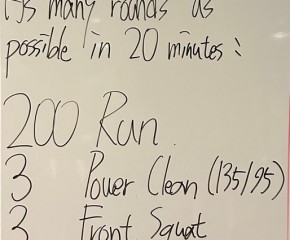 as many rounds as
possible in 20 minutes :
200 Run
3 Power Clean (135/95)
3 Front Squat